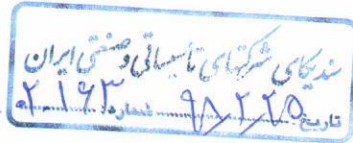 سندیکای شرکتهای تاسیساتی و صنعتی ایران
تاریخ ۹۸/۲/۲۵ شماره ۲۰۱۶۳